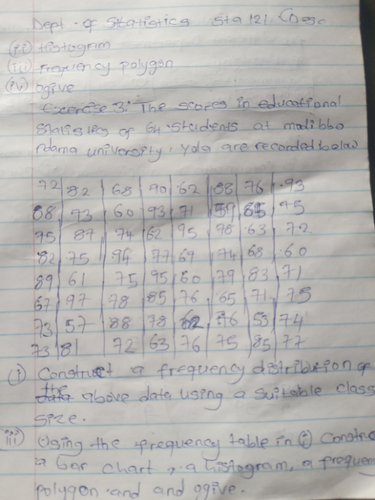 Dept. of Statistics Sta 121
(ii) Histogram
(iii) Frequency polygon
(iv) ogive
Exercise 3: The scores in educational
Statistics of 64 students at modibbo
Adama university, Yola are recorded below
72 82 68 90 62 88 76 93
88 93 60 93 71 59 85 75
75 87 74 62 95 78 63 72
82 75 94 77 69 74 68 60
89 61 75 95 60 79 83 71
67 97 78 85 76 65 71 75
73 57 88 78 62 76 53 74
73 81 72 63 76 75 85 77
(i) Construct a frequency distribution of
the above data using a suitable class
size.
Using the frequency table in (i) Construc
a bar chart, a histogram, a frequen
polygon and and ogive.